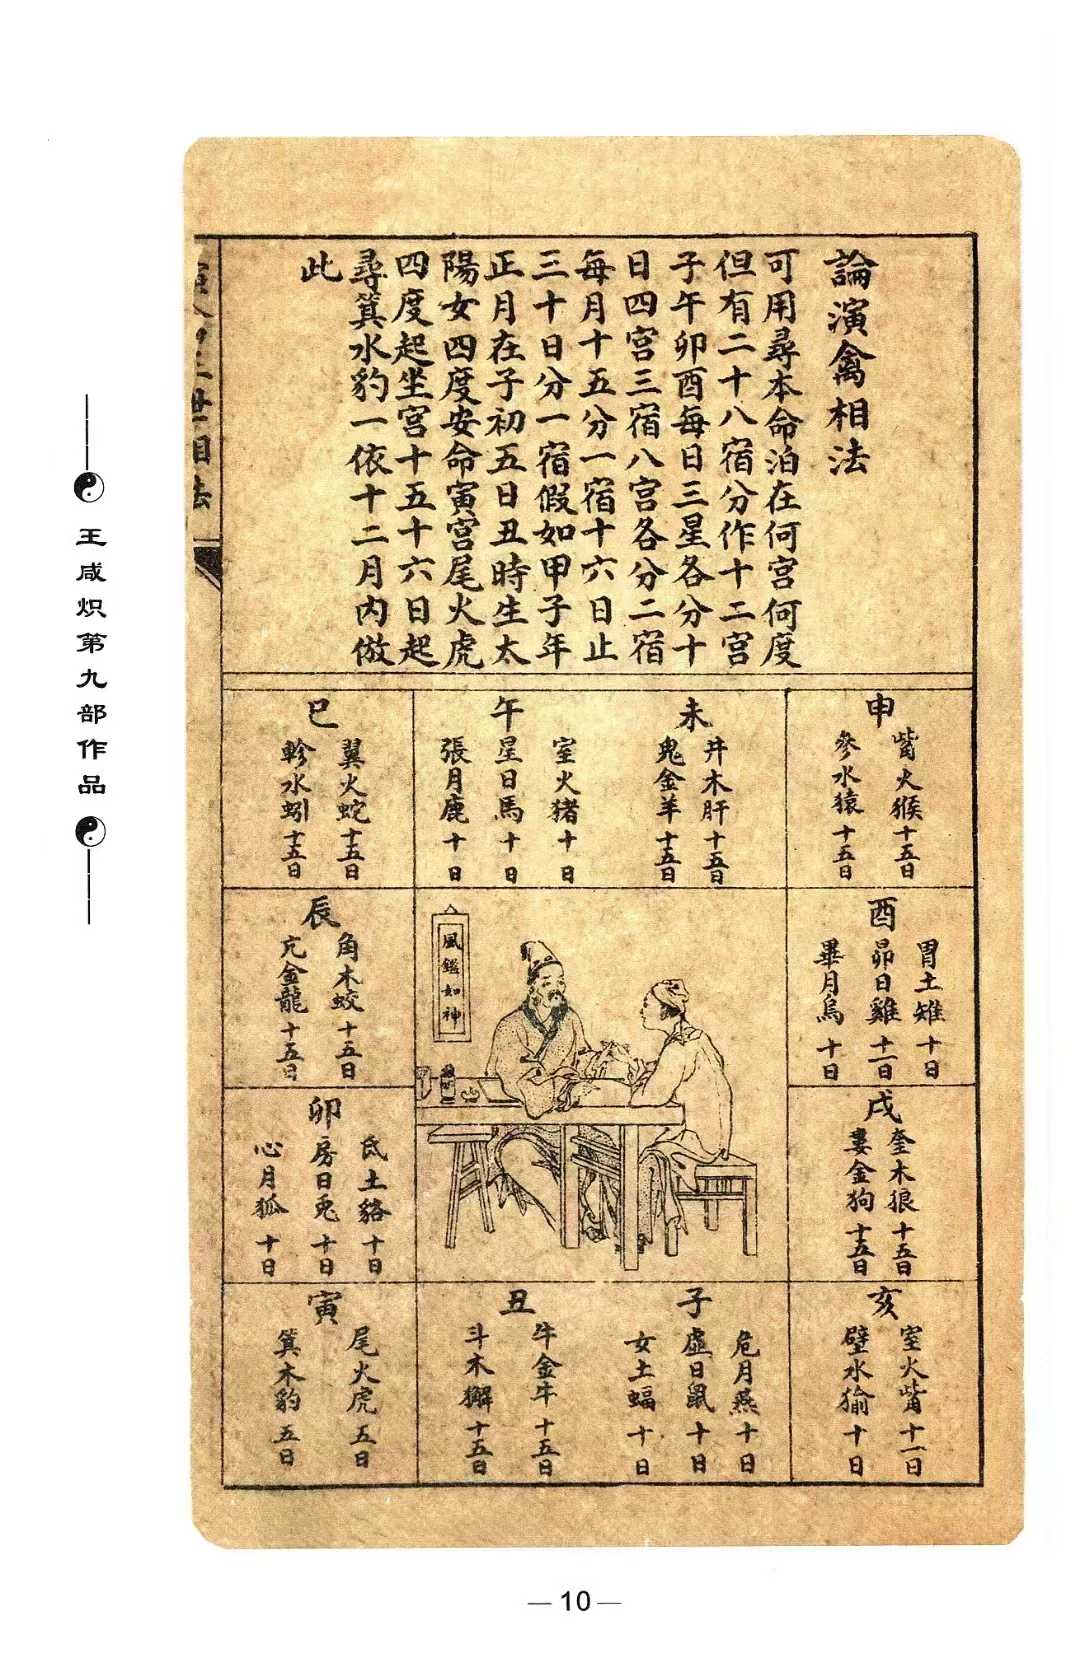 論演禽相法
可用尋本命泊在何宮何度
但有二十八宿分作十二宮
子午卯酉每日三星各分十
日四宮三宿八宮各分二宿
每月十五分一宿十六日止
三十日分一宿假如甲子年
正月在子初五日丑時生太
陽女四度安命寅宮尾火虎
四度起坐宮十五十六日起
尋箕水豹一依十二月內倣
此
申
觜火猴十五日
參水猿十五日
未
井木肝十五日
鬼金羊十五日
午
室火猪十日
星日馬十日
張月鹿十日
巳
翼火蛇十五日
軫水蚓十五日
酉
胃土雉十日
昴日雞十一日
畢月烏十日
辰
角木蛟十五日
亢金龍十五日
風鑑如神
戌
奎木狼十五日
婁金狗十五日
卯
氐土貉十日
房日兎十日
心月狐十日
亥
室火觜十一日
壁水㺄十日
子
危月燕十日
虛日鼠十日
女土蝠十日
丑
牛金牛十五日
斗木獬十五日
寅
尾火虎五日
箕木豹五日
世相法
王咸炽第九部作品
—10—